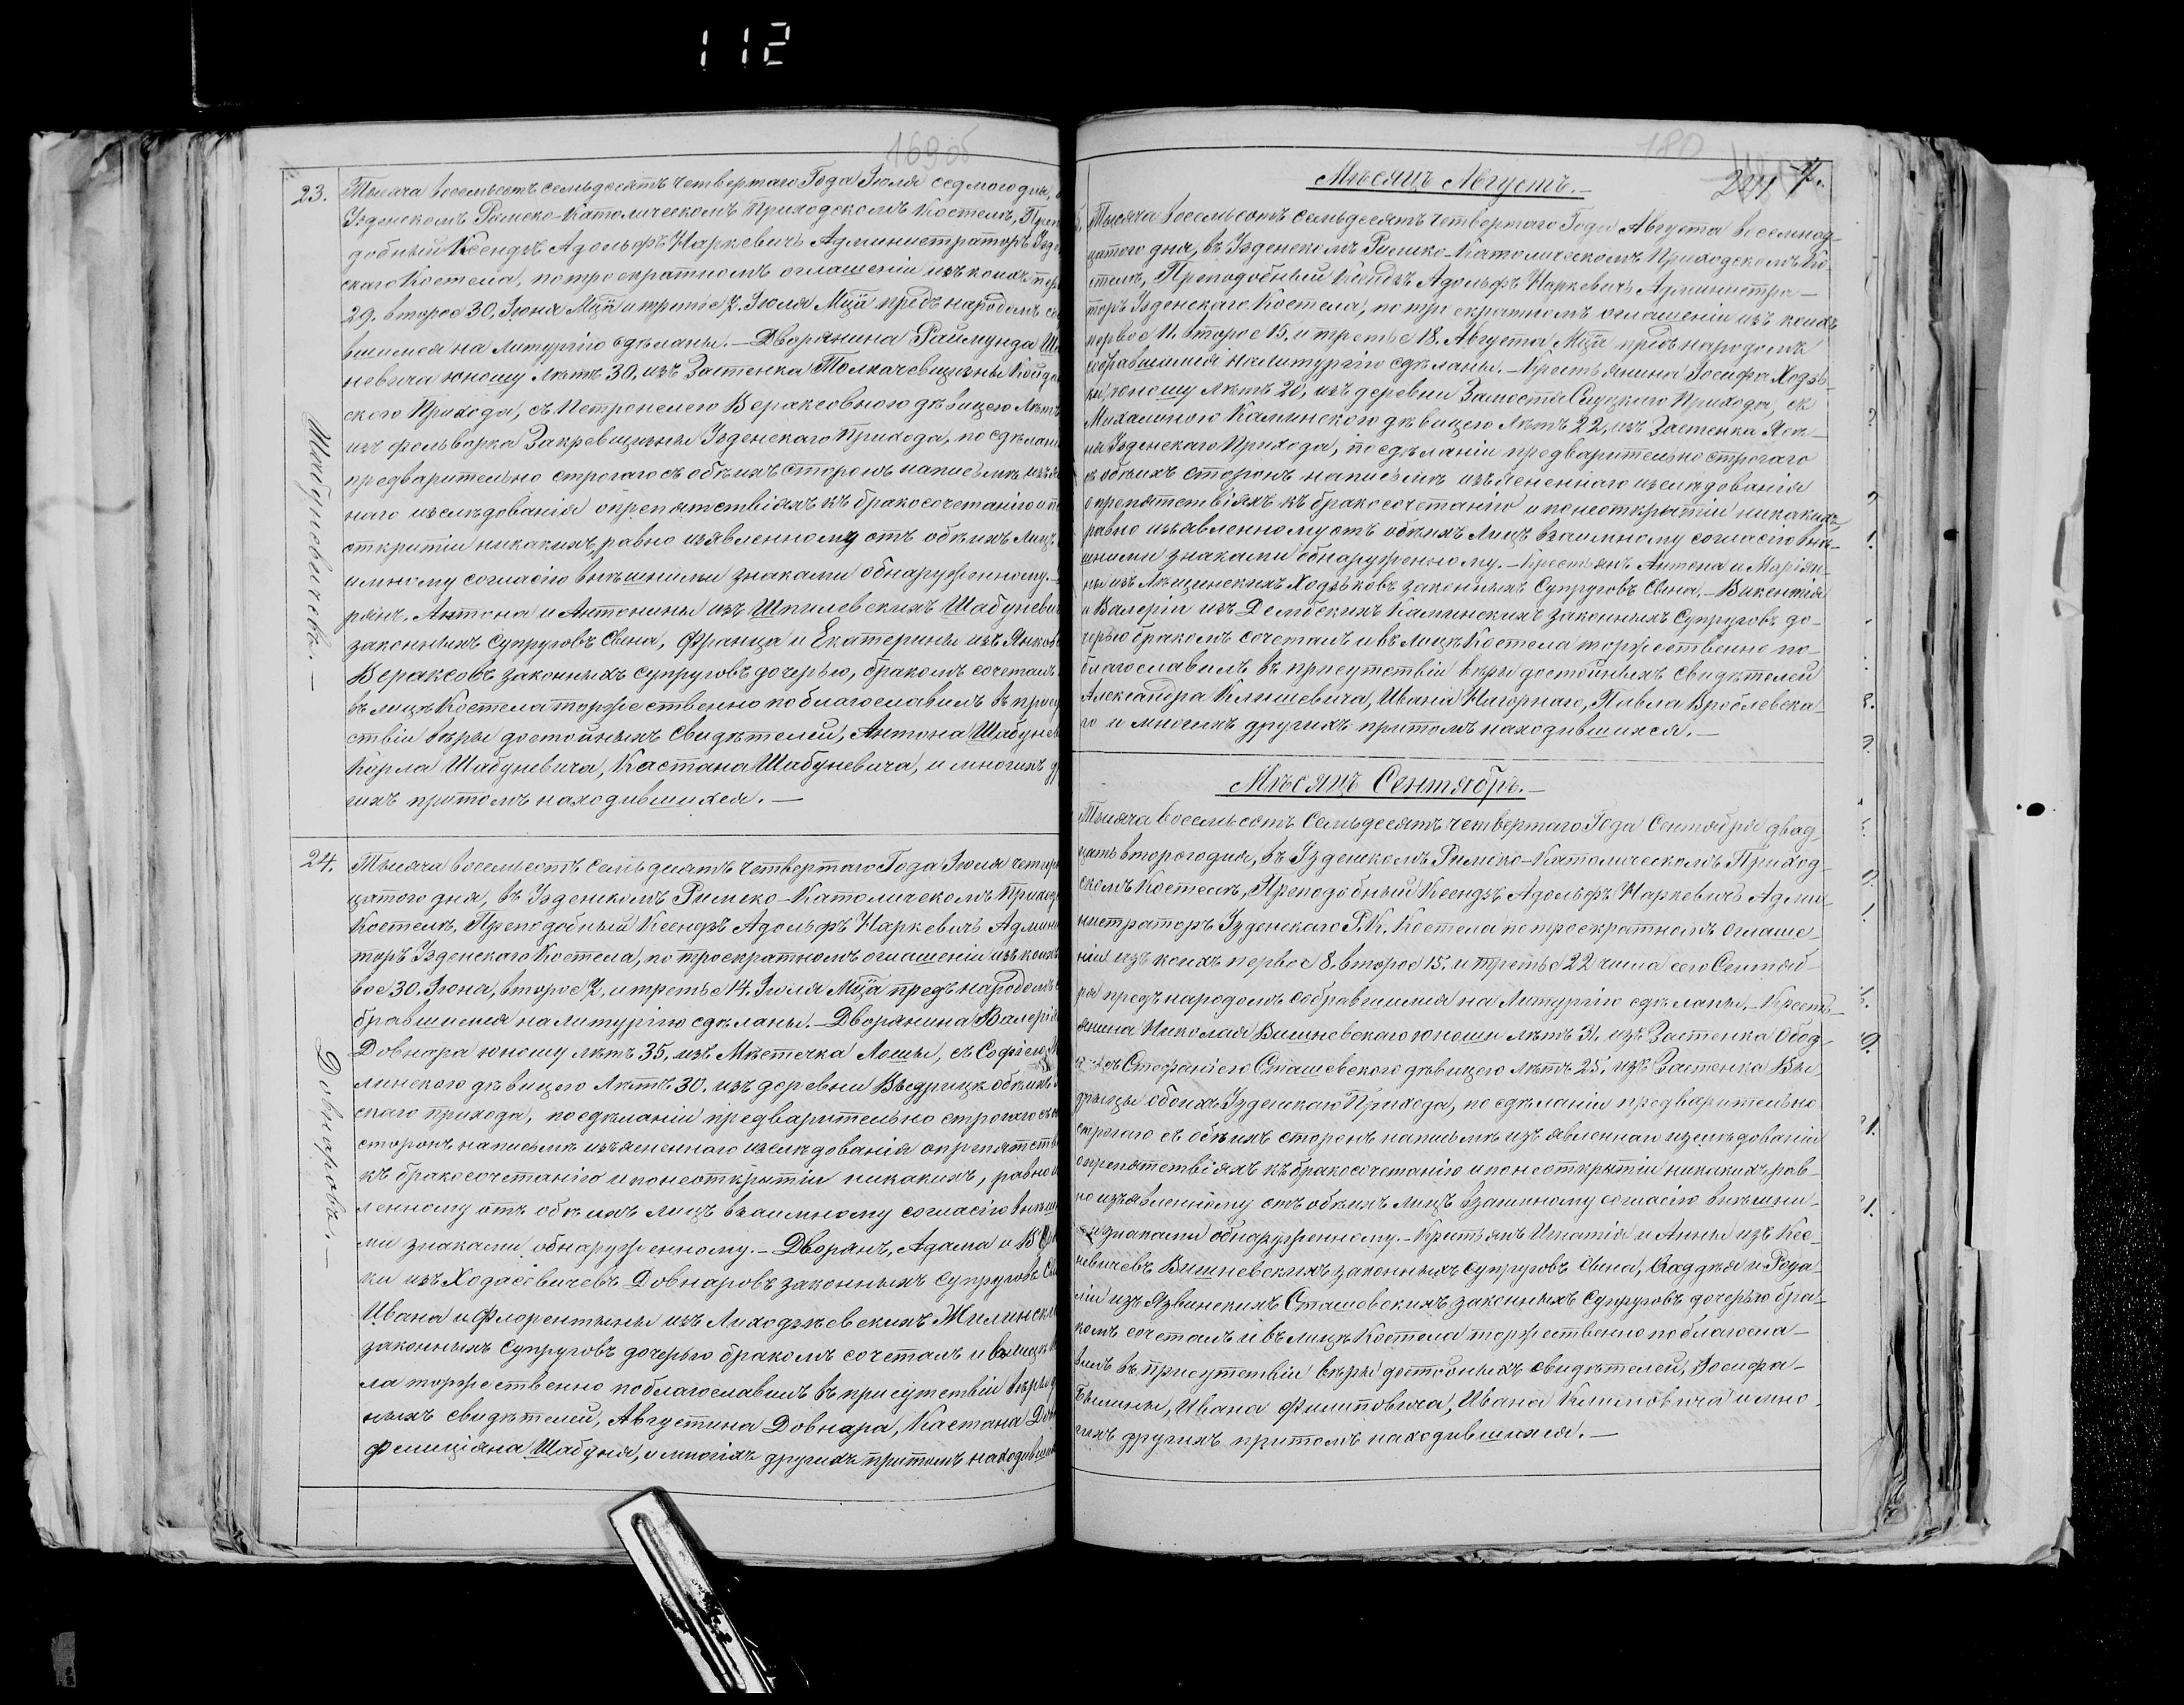 112
169об
23.
Тысяча восемьсотъ семьдесятъ четвертаго Года Іюля седмого дня,
Узденскомъ Римско-Католическомъ Приходскомъ Костелѣ,
добный Ксендзъ Адольфъ Наркевичъ Администраторъ
скаго Костела, по троекратномъ оглашеніи изъ коихъ
29. второе 30. Іюня Мца и третье 7. Іюля Мца предъ народомъ
вшимся на литургію сдѣланы. — Дворянина Раймунда
невича юношу лѣтъ 30. изъ Застенка Толкачевщизны
ского Прихода, съ Петронелею Вераксовною дѣвицею
изъ фольварка Закревщизны Узденскаго Прихода, по
предварительно строгаго съ обѣихъ сторонъ написьмѣ
наго изслѣдованія опрепятствіяхъ къ бракосочетанію
открытіи никакихъ, равно изявленному отъ обѣихъ Лицъ
имному согласію внѣшними знаками обнаруженному. —
рянъ, Антона и Антонины изъ Шпилевскихъ
законныхъ Супруговъ Сына, Франца и Екатерины изъ
Вераксовъ законныхъ супруговъ дочерью, бракомъ сочеталъ
въ лицѣ Костела торжественно поблагославилъ въ
ствіи вѣры достойныхъ Свидѣтелей, Антона
Карла Шабуневича, Кастана Шабуневича, и многихъ
гихъ притомъ находившихся. —
Шабуневичевъ. —
24.
Тысяча восемьсотъ семьдесятъ четвертаго Года Іюля
цатого дня, въ Узденскомъ Римско-Католическомъ
Костелѣ, Преподобный Ксендзъ Адольфъ Наркевичъ
торъ Узденскаго Костела, по троекратномъ оглашеніи изъ
вое 30. Іюня, второе 7, и третье 14. Іюля Мца предъ народомъ
бравшимся на литургію сдѣланы. — Дворянина
Довнара юношу лѣтъ 35. изъ Мѣстечка Лоши, съ Софіею
линскою дѣвицею лѣтъ 30. изъ деревни Выдрицк
скаго прихода, по сдѣланіи предварительно строгаго
сторонъ написьмѣ изъясненного изслѣдованія
къ бракосочетанію и по неоткрытіи никакихъ, равно
ленному отъ обѣихъ лицъ взаимному согласію
ми знаками обнаруженному. — Дворянъ, Адама и
ки изъ Ходасевичевъ Довнаровъ законныхъ супруговъ
Ивана и Флорентыны изъ Лиходѣевскихъ
законныхъ Супруговъ дочерью бракомъ сочеталъ и
ла торжественно поблагославилъ въ присутствіи вѣры
ныхъ свидѣтелей, Августина Довнара, Кастана
Фелиціяна Шабуня, и многихъ другихъ притомъ
Довнаровъ. —
180
7.
Мѣсяцъ Августъ. —
Тысяча восемьсотъ семьдесятъ четвертаго Года Августа восемнад-
цатого дня, въ Узденскомъ Римско-Католическомъ Приходскомъ Ко-
стелѣ, Преподобный Ксендзъ Адольфъ Наркевичъ Администра-
торъ Узденскаго Костела, по три екратномъ оглашеніи изъ коихъ
первое 11. второе 15. и третье 18. Августа Мца предъ народомъ
собравшимся на литургію сдѣланы. — Крестьянина Іосифа Ходзь-
ки, юношу лѣтъ 20, изъ деревни Замостя Слуцкаго Прихода, съ
Михалиною Каминскою дѣвицею лѣтъ 22, изъ Застенка
на Узденскаго Прихода, по сдѣланіи предварительно строгаго
съ обѣихъ сторонъ написьмѣ изъясненнаго изслѣдованія
опрепятствіяхъ къ бракосочетанію и по неоткрытіи никакихъ
равно изъявленному отъ обѣихъ Лицъ взаимному согласію внѣ-
шними знаками обнаруженному. — Крестьянъ Антона и Маріян-
ны изъ Лѣщинскихъ Ходзьковъ законныхъ Супруговъ Сына, — Викентія
и Валеріи изъ Дембскихъ Каминскихъ законныхъ Супруговъ до-
черью бракомъ сочеталъ и въ лицѣ Костела торжественно по-
благославилъ въ присутствіи вѣры достойныхъ Свидѣтелей
Александра Клишевича, Ивана Нагорнаго, Павла Вроблевска-
го и многихъ другихъ притомъ находившихся. —
Мѣсяцъ Сентябрь. —
Тысяча восемьсотъ Семьдесятъ четвертаго Года Сентября двад-
цать второго дня, въ Узденскомъ Римско-Католическомъ Приход-
скомъ Костелѣ, Преподобный Ксендзъ Адольфъ Наркевичъ Адми-
нистраторъ Узденскаго Р. К. Костела по троекратномъ оглаше-
ніи изъ коихъ первое 8. второе 15. и третье 22 числа сего Сентяб-
ря предъ народомъ собравшимся на Литургію сдѣланы. — Кресть-
янина Николая Вишневскаго юношу лѣтъ 31. изъ Застенка
съ Стефаніею Сташевскою дѣвицею лѣтъ 25. изъ Застенка Вы-
дрицы обоихъ Узденскаго Прихода, по сдѣланіи предварительно
строгаго съ обѣихъ сторонъ написьмѣ изъявленнаго изслѣдованія
опрепятствіяхъ къ бракосочетанію и по неоткрытіи никакихъ рав-
но изъявленному отъ обѣихъ лицъ взаимному согласію внѣшни-
ми знаками обнаруженному. — Крестьянъ Игнатія и Анны изъ Кос-
невичевъ Вишневскихъ законныхъ супруговъ Сына, Фаддея и Роза-
ліи изъ Язвинскихъ Сташевскихъ законныхъ Супруговъ дочерью бра-
комъ сочеталъ и въ лицѣ Костела торжественно поблагосла-
вилъ въ присутствіи вѣры достойныхъ свидѣтелей, Іосифа
Былины, Ивана Филиповича, Ивана Климовича и мно-
гихъ другихъ притомъ находившихся. —